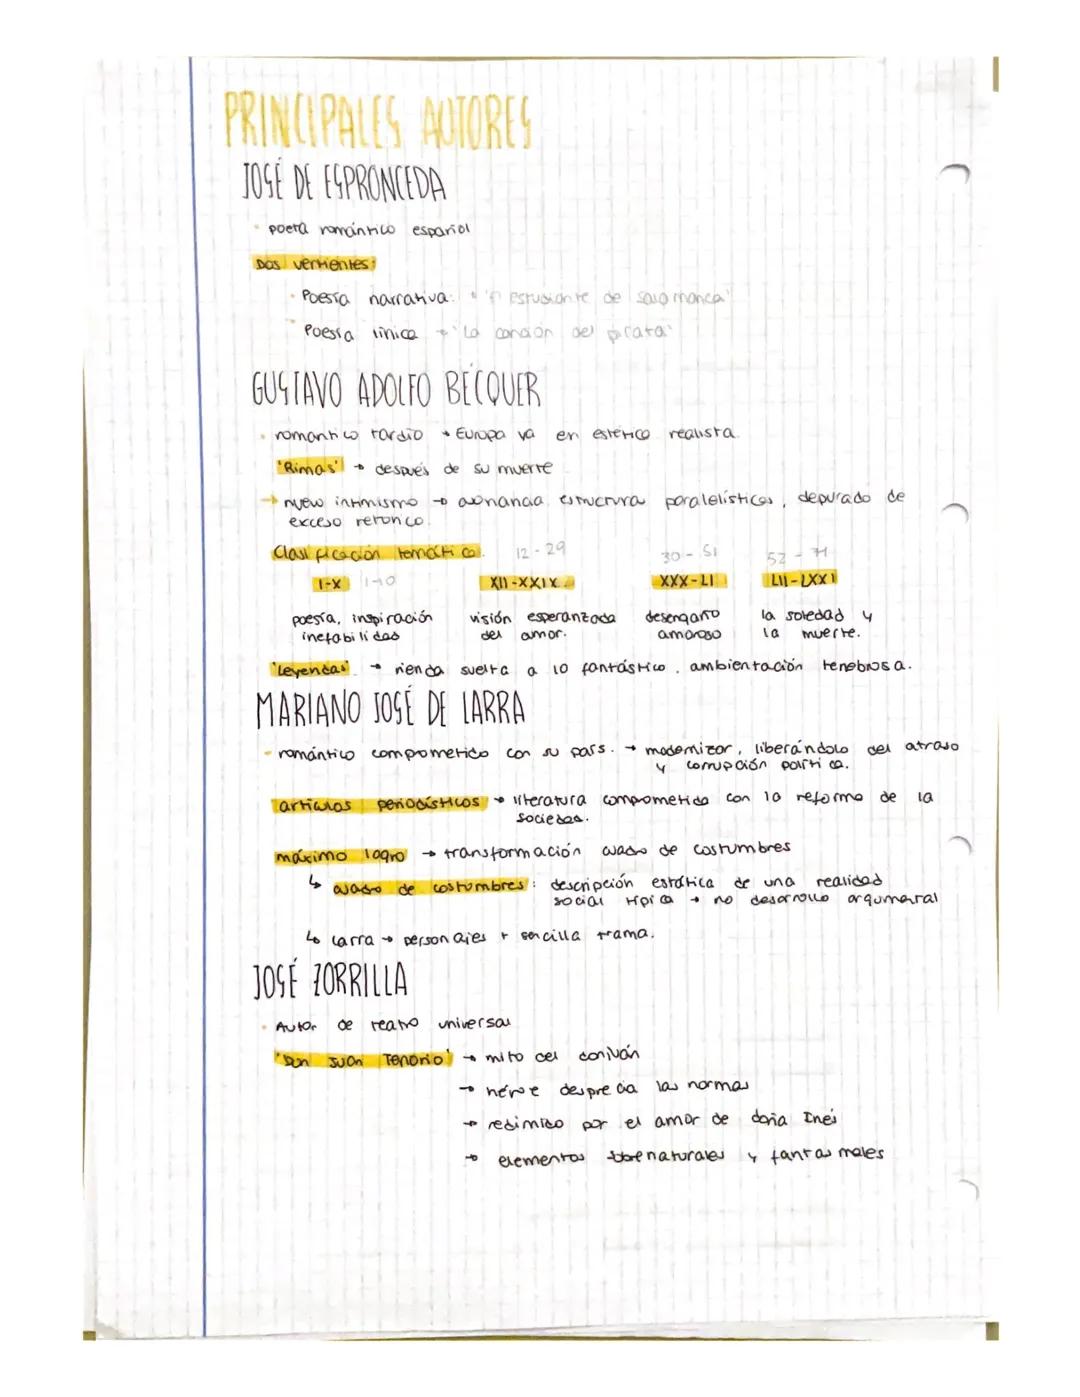 PRINCIPALES AUTORES
JOSÉ DE ESPRONCEDA
• poeta romántico español
Dos vertientes:
• Poesía narrativa: estudiante de Salamanca'
• Poesía lírica → 'La canción del pirata'
GUSTAVO ADOLFO BÉCQUER
• romantico tardío → Europa va en estética realista.
'Rimas' → después de su muerte
→ nuevo intimismo → asonancia, estructura paralelísticas, depurado de
exceso retórico.
Clasificación temática. 12-29 30-51 52-71
I-X 1-10 XII-XXIX XXX-LI LII-LXXI
poesía, inspiración visión esperanzada desengaño la soledad y
inefabilidad del amor. amoroso la muerte.
'Leyendas' → rienda suelta a lo fantástico. ambientación tenebrosa.
MARIANO JOSÉ DE LARRA
• romántico comprometido con su país. → modernizar, liberándolo del atraso
y corrupción política.
artículos periodísticos → literatura comprometida con la reforma de la
sociedad.
máximo logro → transformación cuadro de costumbres
↳ cuadro de costumbres: descripción estática de una realidad
social típica → no desarrollo argumental
↳ Larra → personajes + sencilla trama.
JOSÉ ZORRILLA
• Autor de teatro universal
'Don Juan Tenorio' → mito del donjuán
→ héroe desprecia las normas
→ redimido por el amor de doña Inés
→ elementos sobrenaturales y fantasmales